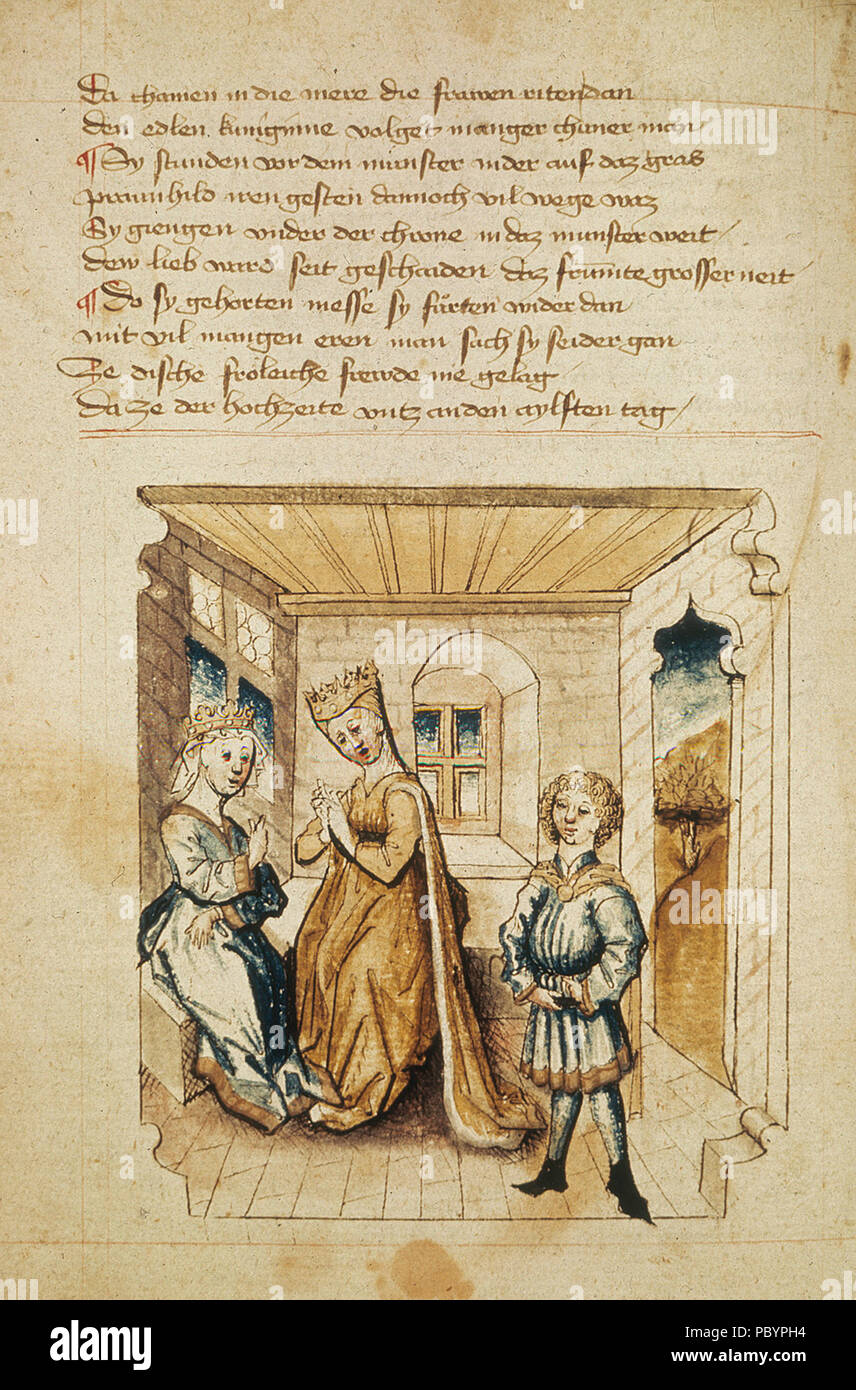 Da chamen in die mere die frawen riten dan
den edlen kuniginne volget manger chuner man
Sy stunden vor dem munster nider auf daz gras
praunhild iren gesten dannoch vil wege waz
Sy giengen vnder der chrone in daz munster weit
dew lieb ward seit geschaiden daz frumte grosser neit
Do sy gehorten messe sy fürten wider dan
mit vil mangen eren man sach sy seider gan
Ze dische fröleiche frewde nie gelag
Da ze der hochzeite vntz an den aylften tag
alamy
Image ID: PBYPH4
www.alamy.com